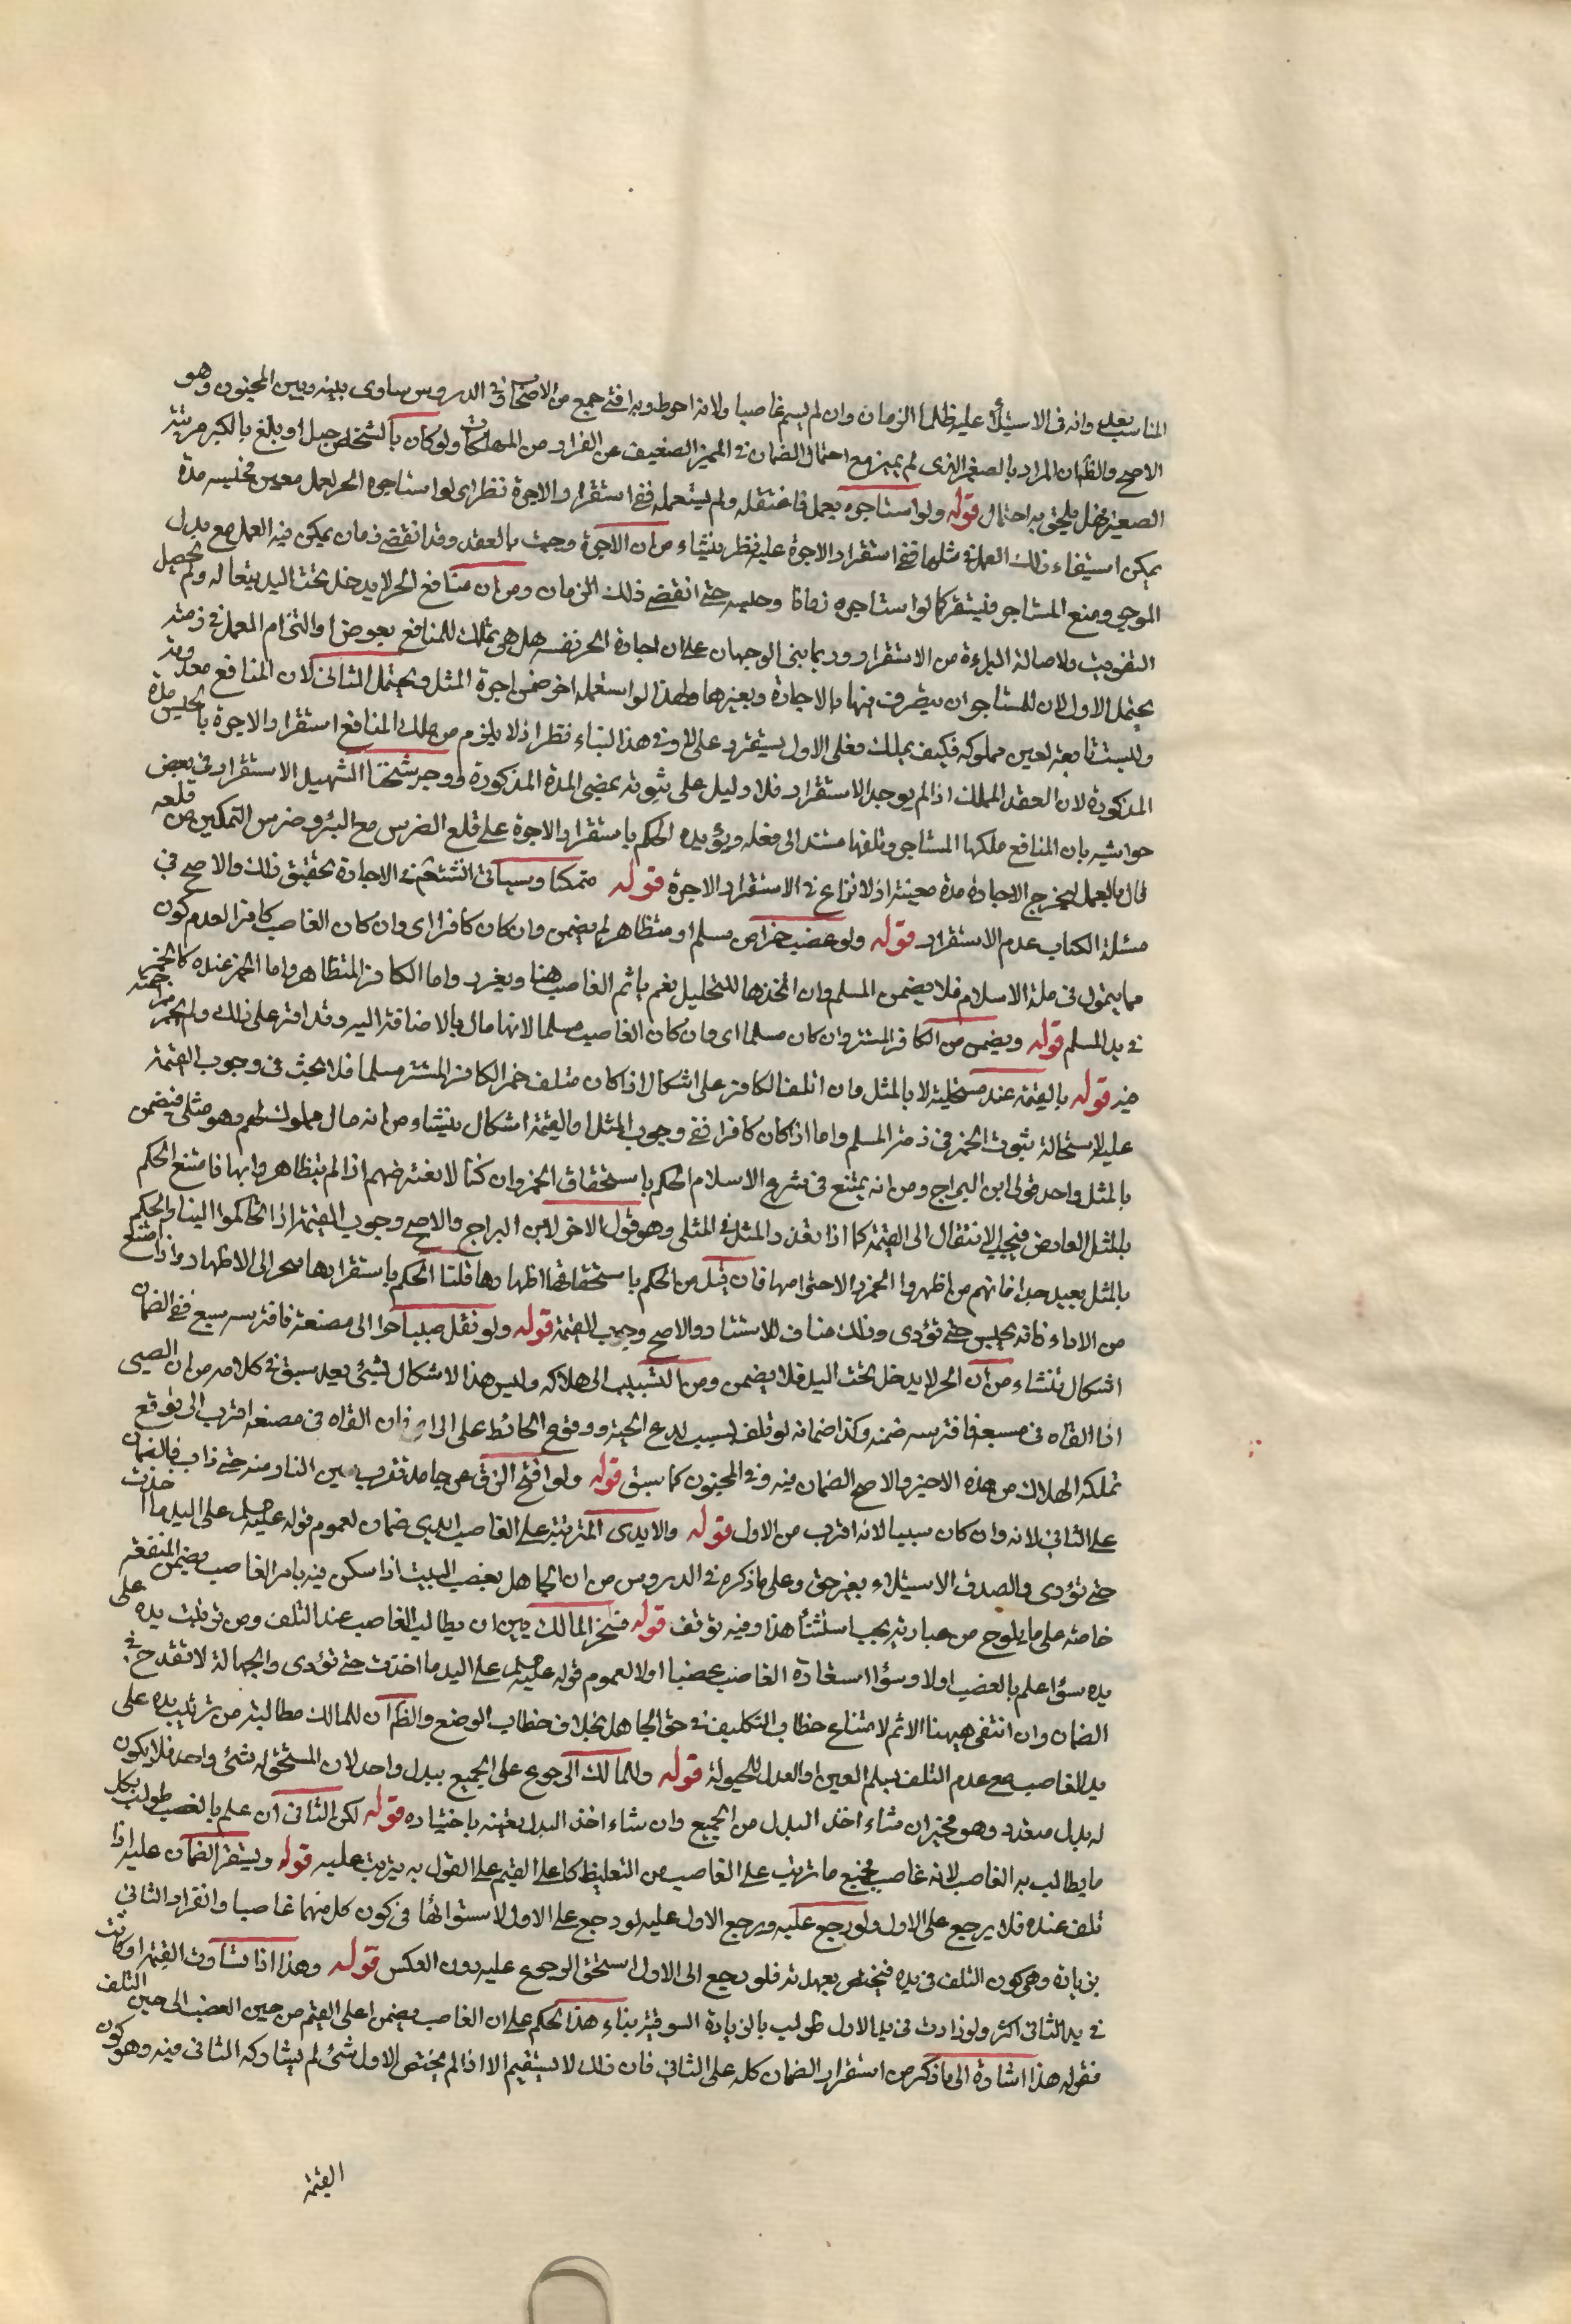 المناسب بعلى وانه فى الاستيلا عليه ظلما الزمان وان لم يسم غاصبا ولانه احوط وبه افتى جمع من الاصحاب فى الدروس ساوى بينه وبين المجنون وهو
الاصح والظ ان المراد بالصغير الذى لم يميز مع احتمال الضمان فى المميز الضعيف عن الفرار من المهلكات ولو كان بالشخص خبل او بلغ بالكبر مرتبة
الصغير فهل يلحق به احتمال قوله ولو استاجره بعمل فاعتقله ولم يستعمله ففى استقرار الاجرة نظر اى لو استاجره الحر لعمل معين فحبسه مدة
يمكن استيفاء ذلك العمل فى مثلها ففى استقرار الاجرة عليه نظر ينشاء من ان الاجرة وجبت بالعقد وقد انقضى زمان يمكن فيه العمل مع بذل
الموجر ومنع المستاجر فيستقر كما لو استاجره زمانا وحبسه حتى انقضى ذلك الزمان ومن ان منافع الحر لا يدخل تحت اليد تبعا له ولم يحصل
التفويت ولاصالة البراءة من الاستقرار وربما بنى الوجهان على ان اجارة الحر نفسه هل هى تمليك للمنافع بعوض او التزام العمل فى ذمته
يحتمل الاول لان للمستاجر ان يتصرف فيها بالاجارة وبغيرها ولهذا لو استعمله اخر ضمن اجرة المثل ويحتمل الثانى لان المنافع معدومة
وليست تابعة لعين مملوكة فكيف يملك فعلى الاول يستقر وعلى الثانى لا وفى هذا البناء نظر اذ لا يلزم من ملك المنافع استقرار الاجرة بالحبس مدة
المذكورة لان العقد المملك اذا لم يوجب الاستقرار فلا دليل على ثبوته بمضى المدة المذكورة ووجه شيخنا الشهيد الاستقرار فى بعض
حواشيه بان المنافع ملكها المستاجر وتلفها مستند الى فعله ويؤيده الحكم باستقرار الاجرة على قلع الضرس مع البرؤ ومن التمكين من قلعه
قال بالعمل ليخرج الاجارة مدة معينة اذ لا نزاع فى الاستقرار الاجرة قوله متمكنا وسياتى انشتم فى الاجارة تحقيق ذلك والاصح فى
مسئلة الكتاب عدم الاستقرار قوله ولو غصب خمرا من مسلم او متظاهر لم يضمن وان كان كافرا اى وان كان الغاصب كافرا لعدم كون
مما يتمول فى ملة الاسلام فلا يضمن المسلم وان اتخذها للتخليل نعم ياثم الغاصب هنا ويعزر واما الكافر المتظاهر واما الخمر عنده كالخمر
فى يد المسلم قوله ويضمن من الكافر المستتر وان كان مسلما اى وان كان الغاصب مسلما لانها مال بالاضافة اليه وقد اقر على ذلك ولم يجز مزاحمته
فيه قوله بالقيمة عند مستحليه لا بالمثل وان اتلف الكافر على اشكال اذا كان متلف خمر الكافر المستتر مسلما فلا بحث فى وجوب القيمة
عليه لاستحالة ثبوت الخمر فى ذمة المسلم واما اذا كان كافرا ففى وجوب المثل او القيمة اشكال ينشاء من انه مال مملوك لهم وهو مثلى فيضمن
بالمثل واحد قولى ابن البراج ومن انه يمتنع فى شرع الاسلام الحكم باستحقاق الخمر وان كنا لا نعترضهم اذا لم يتظاهروا بها فامتنع الحكم
بالمثل لعارض فيجب الانتقال الى القيمة كما اذا تعذر المثل فى المثلى وهو قول الاخر لابن البراج والاصح وجوب القيمة اذا تحاكموا الينا والحكم
بالمثل بعيد جدا فانهم من اظهروا الخمر والاحترامها فان قيل من الحكم باستحقاقها اظهارها قلنا الحكم باستقرارها منجر الى الاظهار واذا امتنع
من الاداء فانه يحبس حتى تؤدى وذلك مناف للاستتار والاصح وجوب القيمة قوله ولو نقل صبيا حرا الى مضيعة فافترسه سبع ففى الضمان
اشكال تنشاء من ان الحر لا يدخل تحت اليد فلا يضمن ومن التسبيب الى هلاكه وليس هذا الاشكال لشئ بعد سبق فى كلامه من ان الصبى
اذا القاه فى مسبعة فافترسه ضمنه وكذا ضمانه لو تلف بسبب لدغ الحية ووقوع الحائط على الراى فان القاه فى مضيعة اقرب الى توقع
تملكه الهلاك من هذه الاخيرة والاصح الضمان فيه وفى المجنون كما سبق قوله ولو افتح الزق عن جامد فقرب غيره النار منه حتى ذاب فالضمان
على الثانى لانه وان كان سببا لانه اقرب من الاول قوله والايدى المترتبة على الغاصب ايدى ضمان لعموم قوله عليه السلام على اليد ما اخذت
حتى تؤدى والصدق الاستيلاء بغير حق وعلى ما ذكره فى الدروس من ان الجاهل بغصب البيت اذا سكن فيه بامر الغاصب يضمن المنفعة
خاصة على ما يلوح من عبارته يجب استثناء هذا وفيه توقف قوله فيتخير المالك بين ان يطالب الغاصب عند التلف ومن ترتبت يده على
يده سوا علم بالغصب او لا وسوا استعاده الغاصب غصبا او لا لعموم قوله عليه السلام على اليد ما اخذت حتى تؤدى والجهالة لا تقدح فى
الضمان وان انتفى ههنا الاثم لامتناع خطاب التكليف فى حق الجاهل بخلاف خطاب الوضع والظ ان للمالك مطالبة من ترتب يده على
يد الغاصب مع عدم التلف بسلم العين او البدل للحيولة قوله وللمالك الرجوع على الجميع ببدل واحد لان المستحق له شئ واحد فلا يكون
له بدل متعدد وهو مخير ان شاء اخذ البدل من الجميع وان شاء اخذ البدل بعينه باختياره قوله لكن الثانى ان علم بالغصب طولب بكل
ما يطالب به الغاصب لانه غاصب فجميع ما ترتب على الغاصب من التغليظ كاعلى القيم على القول به يترتب عليه قوله ويستقر الضمان عليه اذا
تلف عنده فلا يرجع على الاول ولو رجع عليه ورجع الاول عليه لو رجع على الاول لاستوائهما فى كون كل منهما غاصبا وانفراد الثانى
بزيادة وهى كون التلف فى يده فيختص بعهدته فلو رجع الى الاول استحق الرجوع عليه دون العكس قوله وهذا اذا تساوت القيمة او كانت
فى يد الثانى اكثر ولو زادت فى يد الاول طولب بالزيادة السوقية بناء هذا الحكم على ان الغاصب يضمن اعلى القيم من حين الغصب الى حين التلف
فقوله هذا اشارة الى ما ذكر من استقرار الضمان كله على الثانى فان ذلك لا يستقيم الا اذا لم يختص الاول شئ لم يشاركه الثانى فيه وهو كون
القيمة